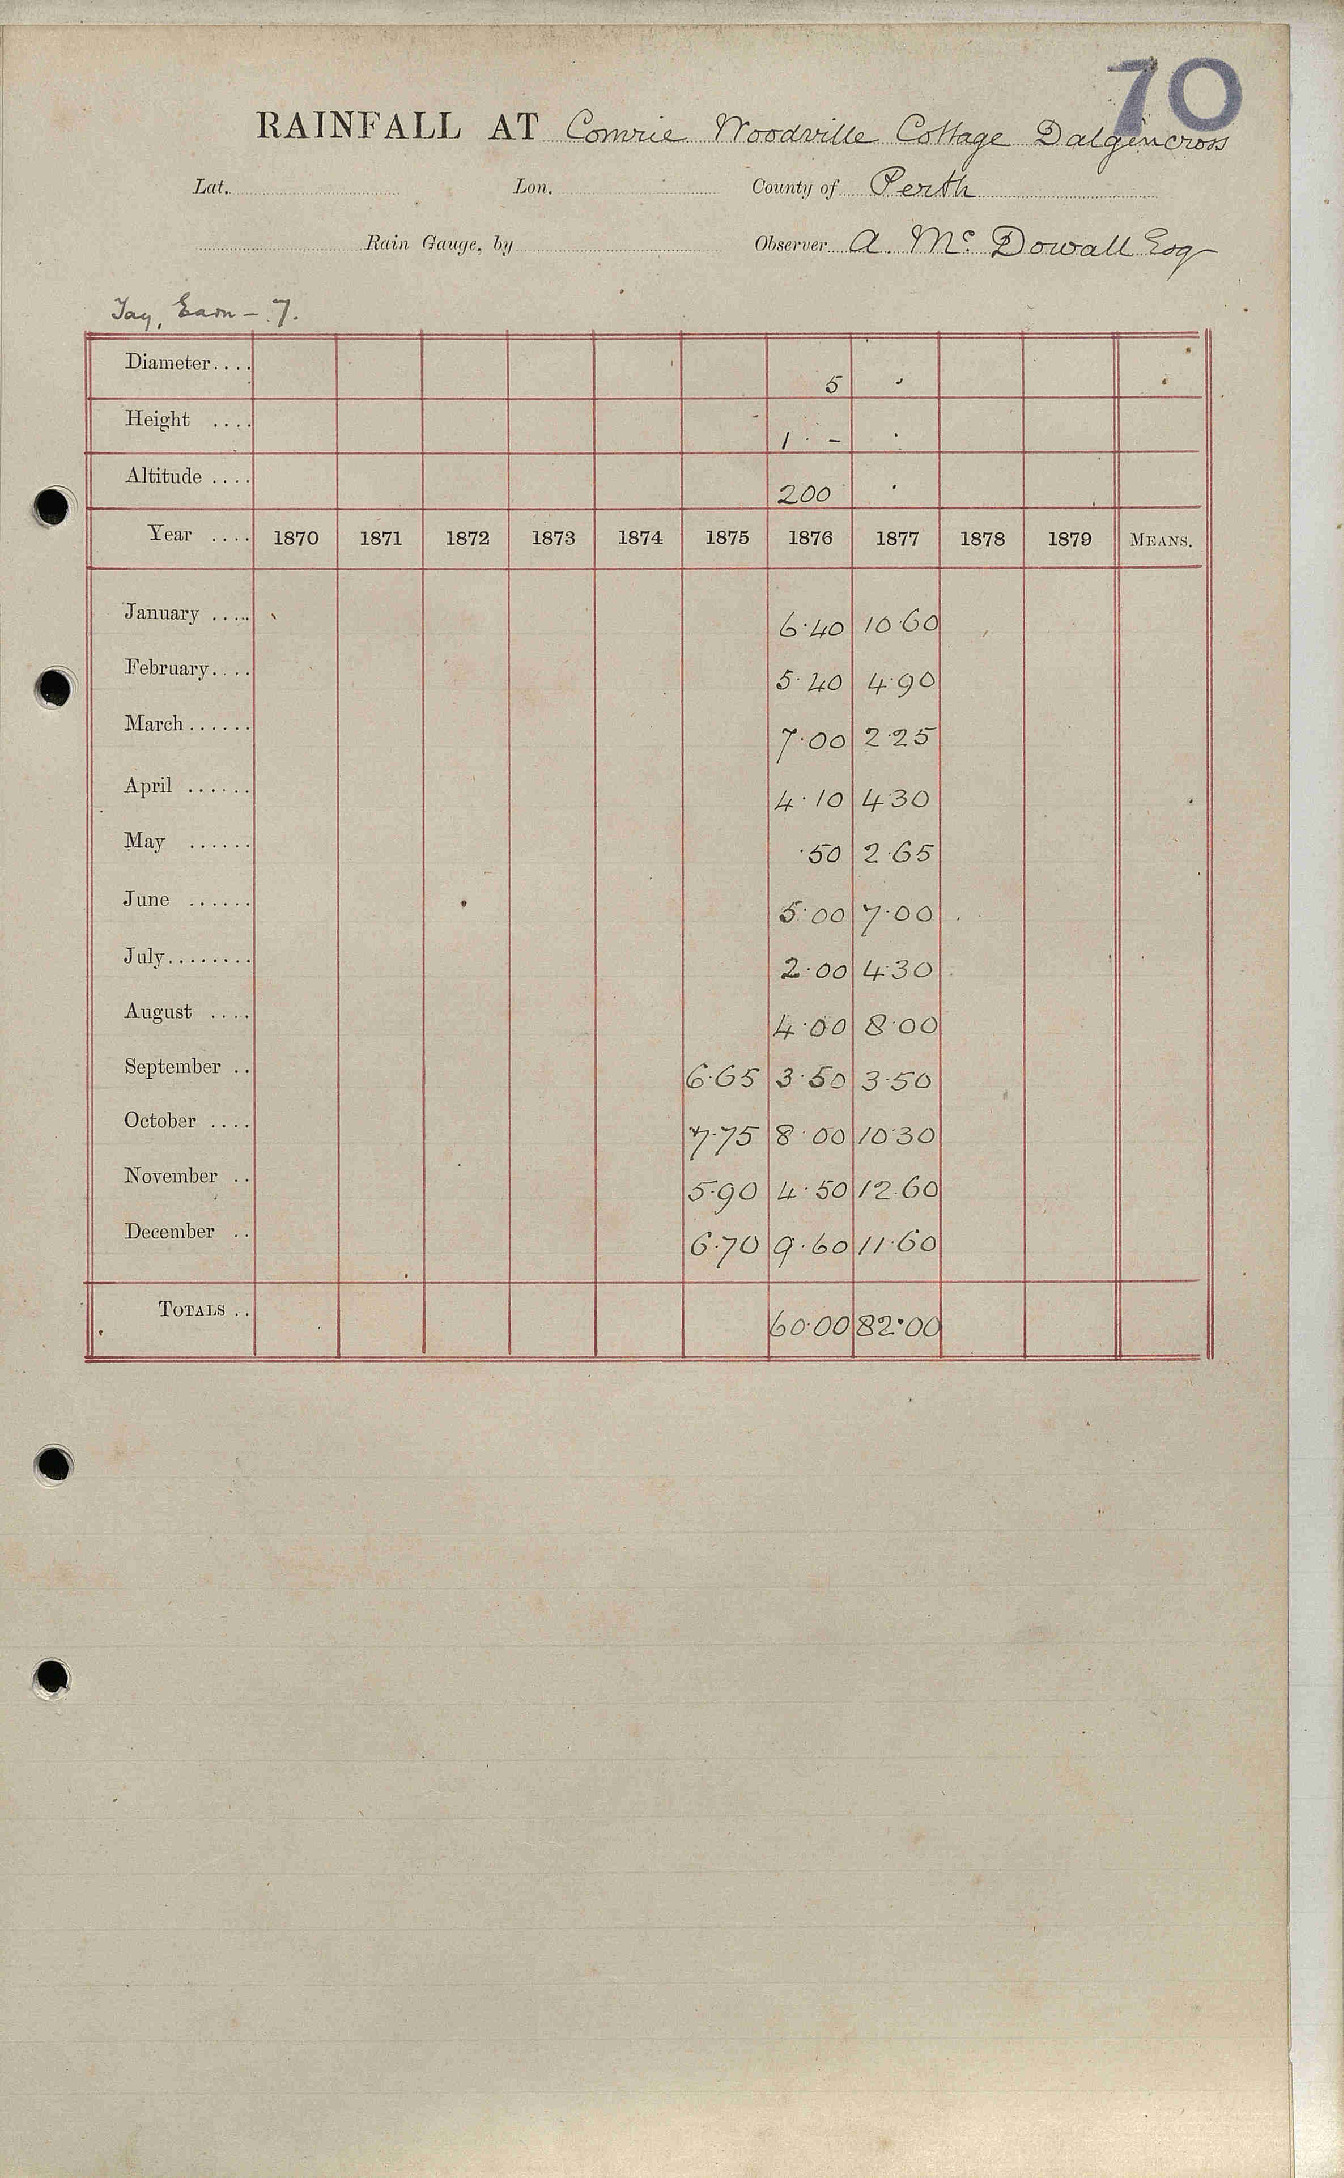 70
RAINFALL AT Comrie Woodville Cottage Dalgincross
Lat. Lon. County of Perth
Rain Gauge, by Observer A. Mc Dowall Esq
Tay, Earn - 7.
Diameter.... 5 "
Height .... 1 - "
Altitude .... 200 "
Year .... 1870 1871 1872 1873 1874 1875 1876 1877 1878 1879 MEANS.
January ..... 6.40 10.60
February.... 5.40 4.90
March...... 7.00 2.25
April ...... 4.10 4.30
May ...... .50 2.65
June ...... 5.00 7.00
July........ 2.00 4.30
August .... 4.00 8.00
September .. 6.65 3.50 3.50
October .... 7.75 8.00 10.30
November .. 5.90 4.50 12.60
December .. 6.70 9.60 11.60
TOTALS .. 60.00 82.00